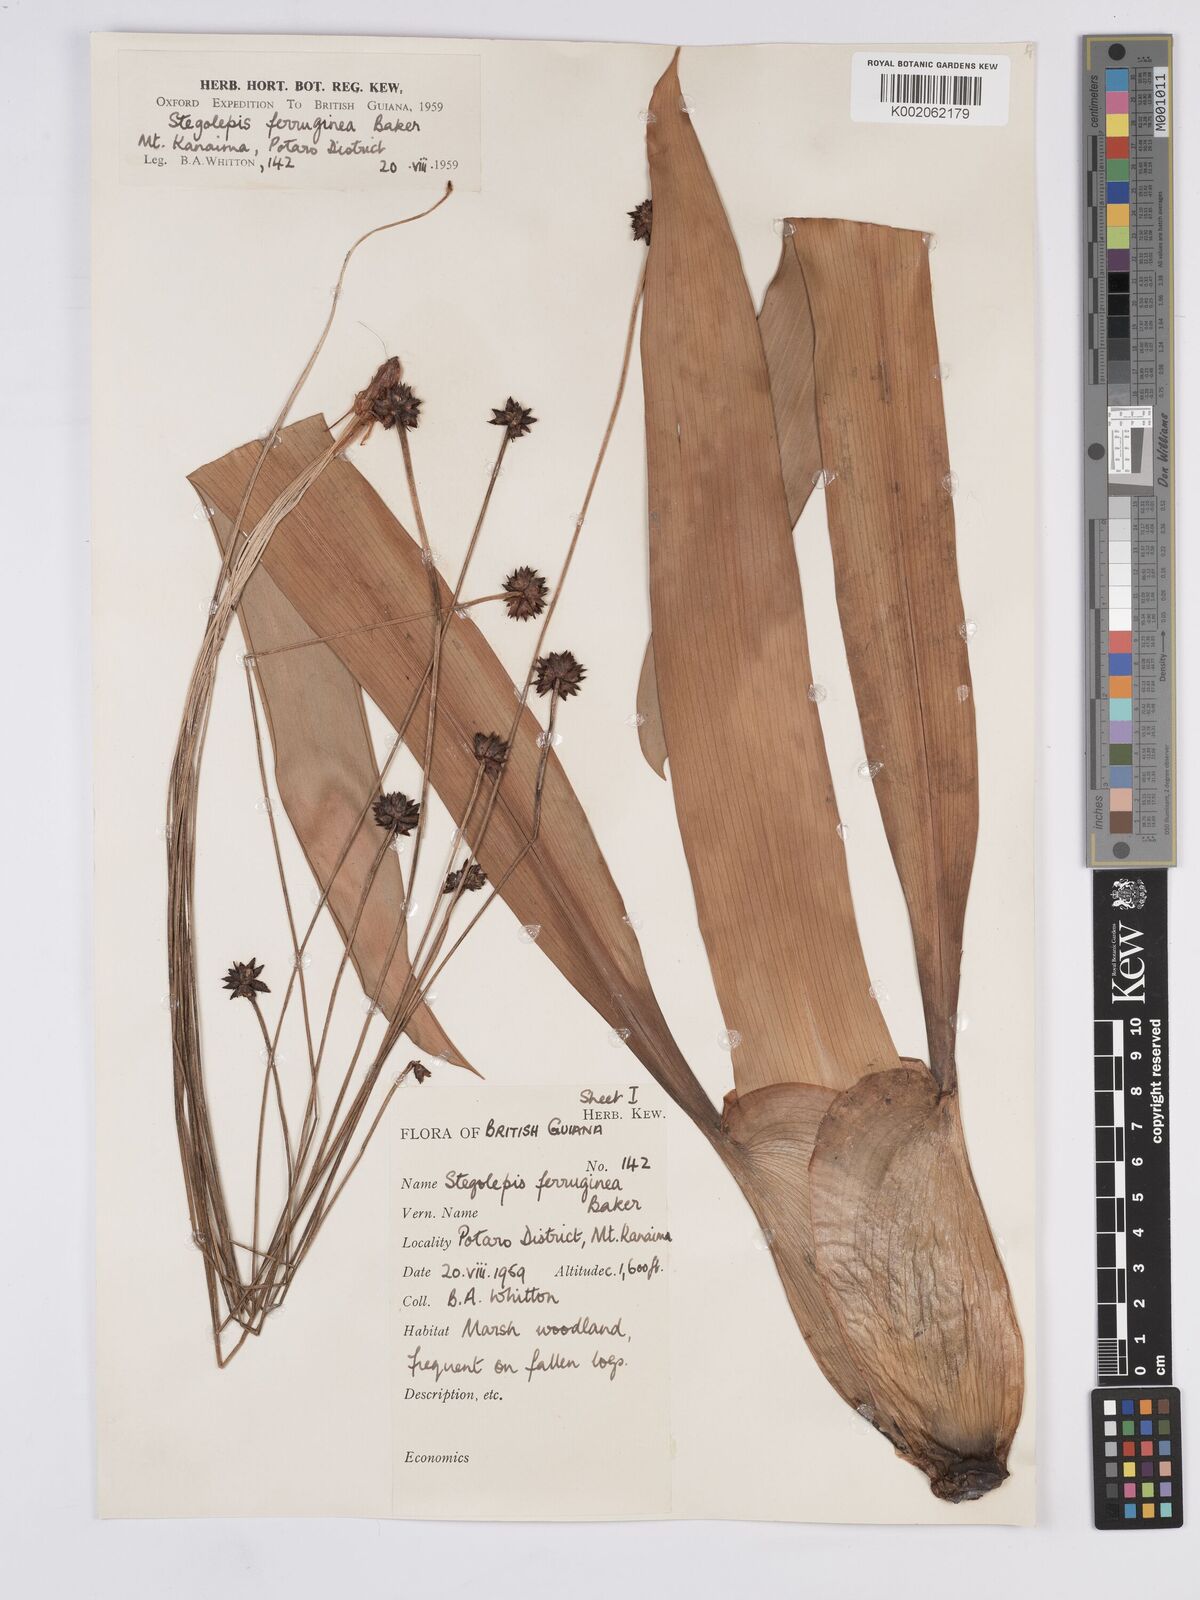 HERB. HORT. BOT. REG. KEW,
OXFORD EXPEDITION TO BRITISH GUIANA, 1959
Stegolepis ferruginea Baker
Mt. Kanaima, Potaro District
Leg. B.A. WHITTON, 142 20.viii.1959
ROYAL BOTANIC GARDENS KEW
K002062179
Sheet I
HERB. KEW.
FLORA OF BRITISH GUIANA
No. 142
Name Stegolepis ferruginea
Baker
Vern. Name
Locality Potaro District, Mt. Kanaima
Date 20.viii.1959 Altitude c. 1,600 ft.
Coll. B.A. Whitton
Habitat Marsh woodland,
frequent on fallen logs.
Description, etc.
Economics
centimeters
M001011
Don Williams
Density
inches
Royal Botanic Gardens
Kew
0 1 2 3 4 5 6 7 8 9 10
cm
copyright reserved